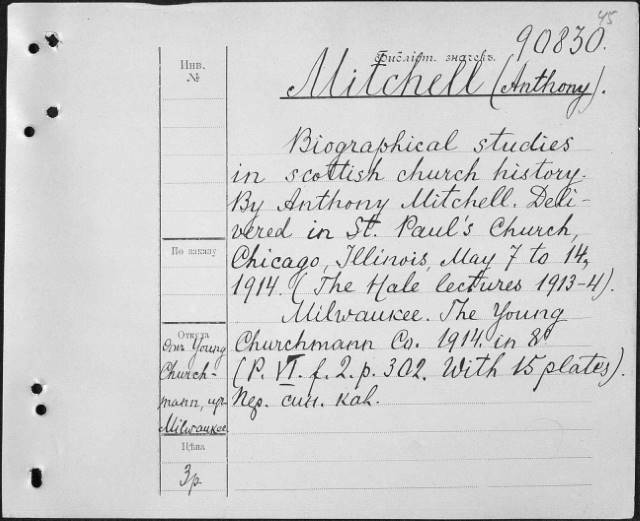 45
90830.
Инв.
№
Mitchell (Anthony).
Biographical studies
in scottish church history.
By Anthony Mitchell. Deli-
vered in St. Paul's Church,
Chicago, Illinois, May 7 to 14,
1914. (The Hale lectures 1913-4).
Milwaukee. The Young
Churchmann Co. 1914. in 8
(P. VI. f. 2. p. 302. With 15 plates).
Пер. син. кал.
По заказу
Откуда
Отъ Young
Church-
mann, изъ
Milwaukee
Цѣна
3 р.